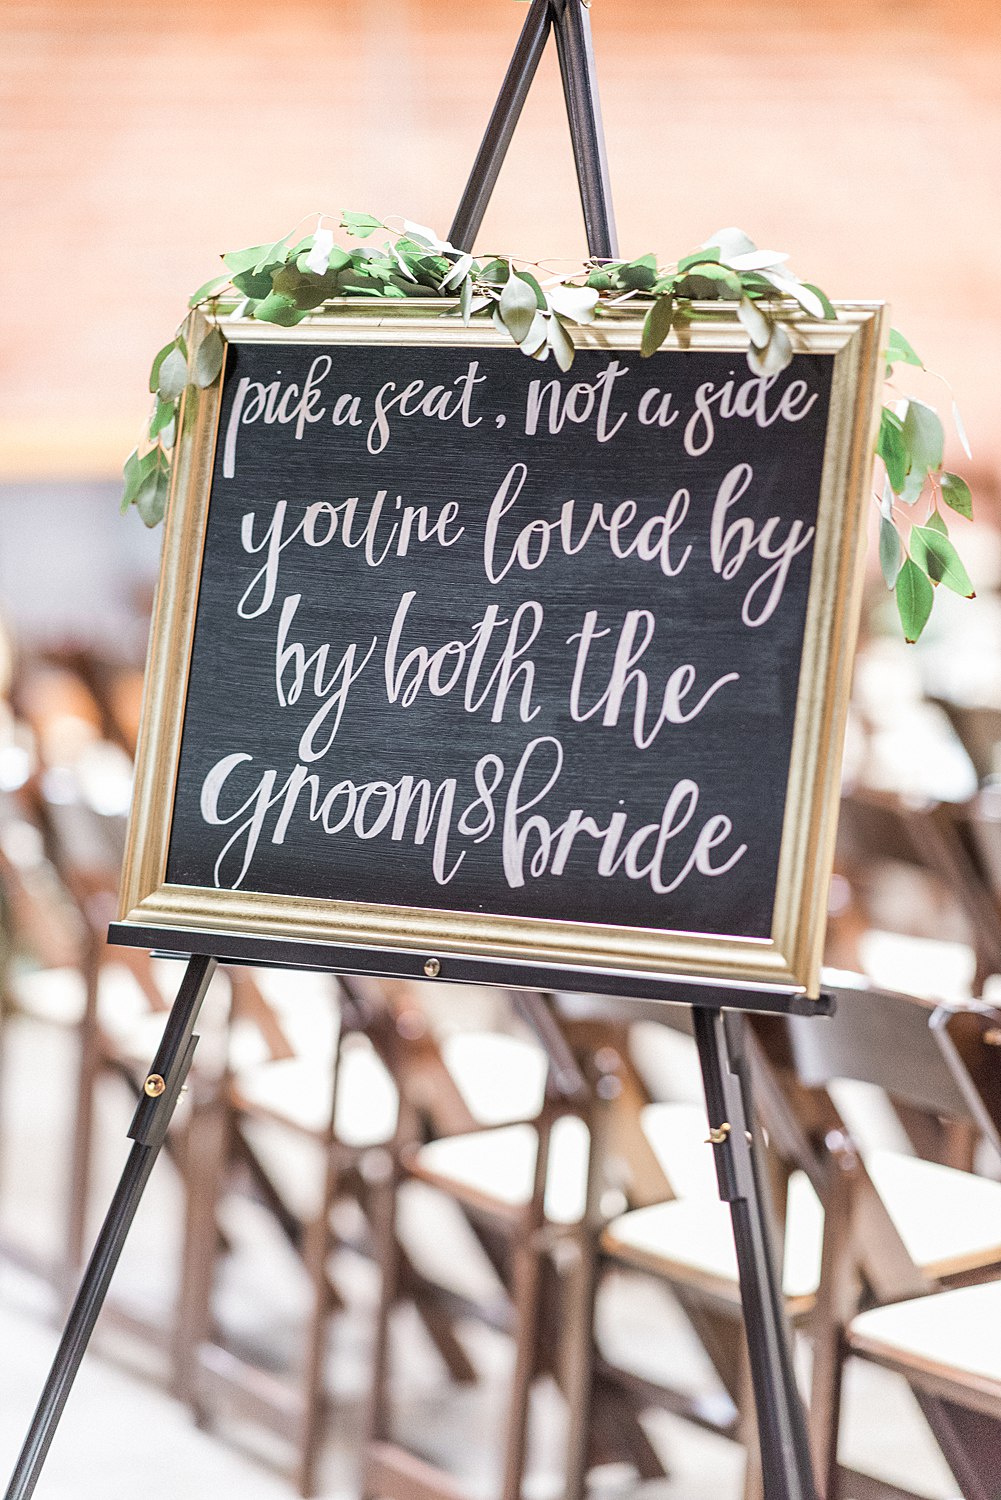 pick a seat, not a side
you're loved by
by both the
groom & bride